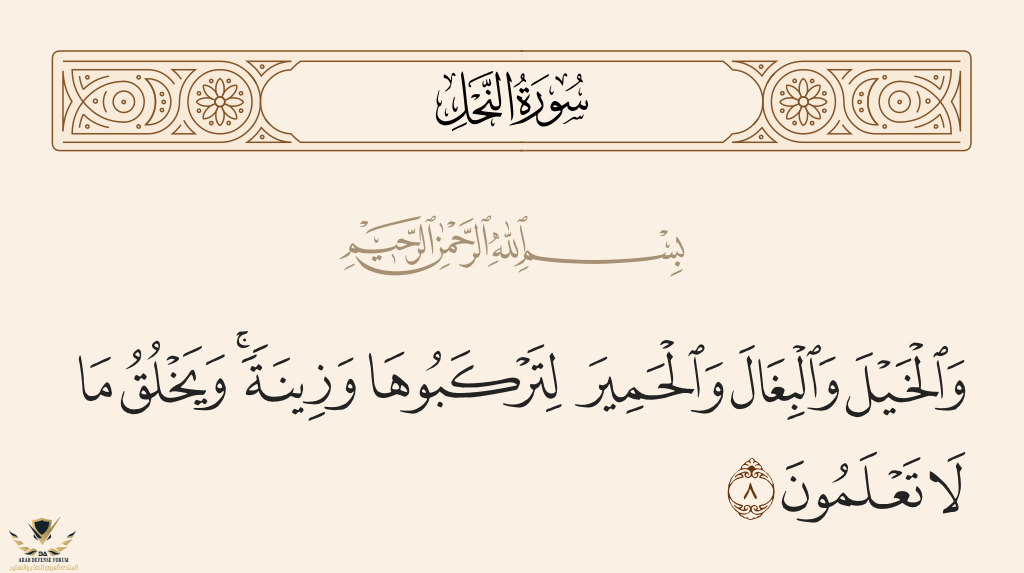 سُورَةُ النَّحْلِ
بِسْمِ ٱللَّهِ ٱلرَّحْمَٰنِ ٱلرَّحِيمِ
وَٱلْخَيْلَ وَٱلْبِغَالَ وَٱلْحَمِيرَ لِتَرْكَبُوهَا وَزِينَةً ۚ وَيَخْلُقُ مَا
لَا تَعْلَمُونَ ٨
DA
ARAB DEFENSE FORUM
المنتدى العربي للدفاع والتسليح